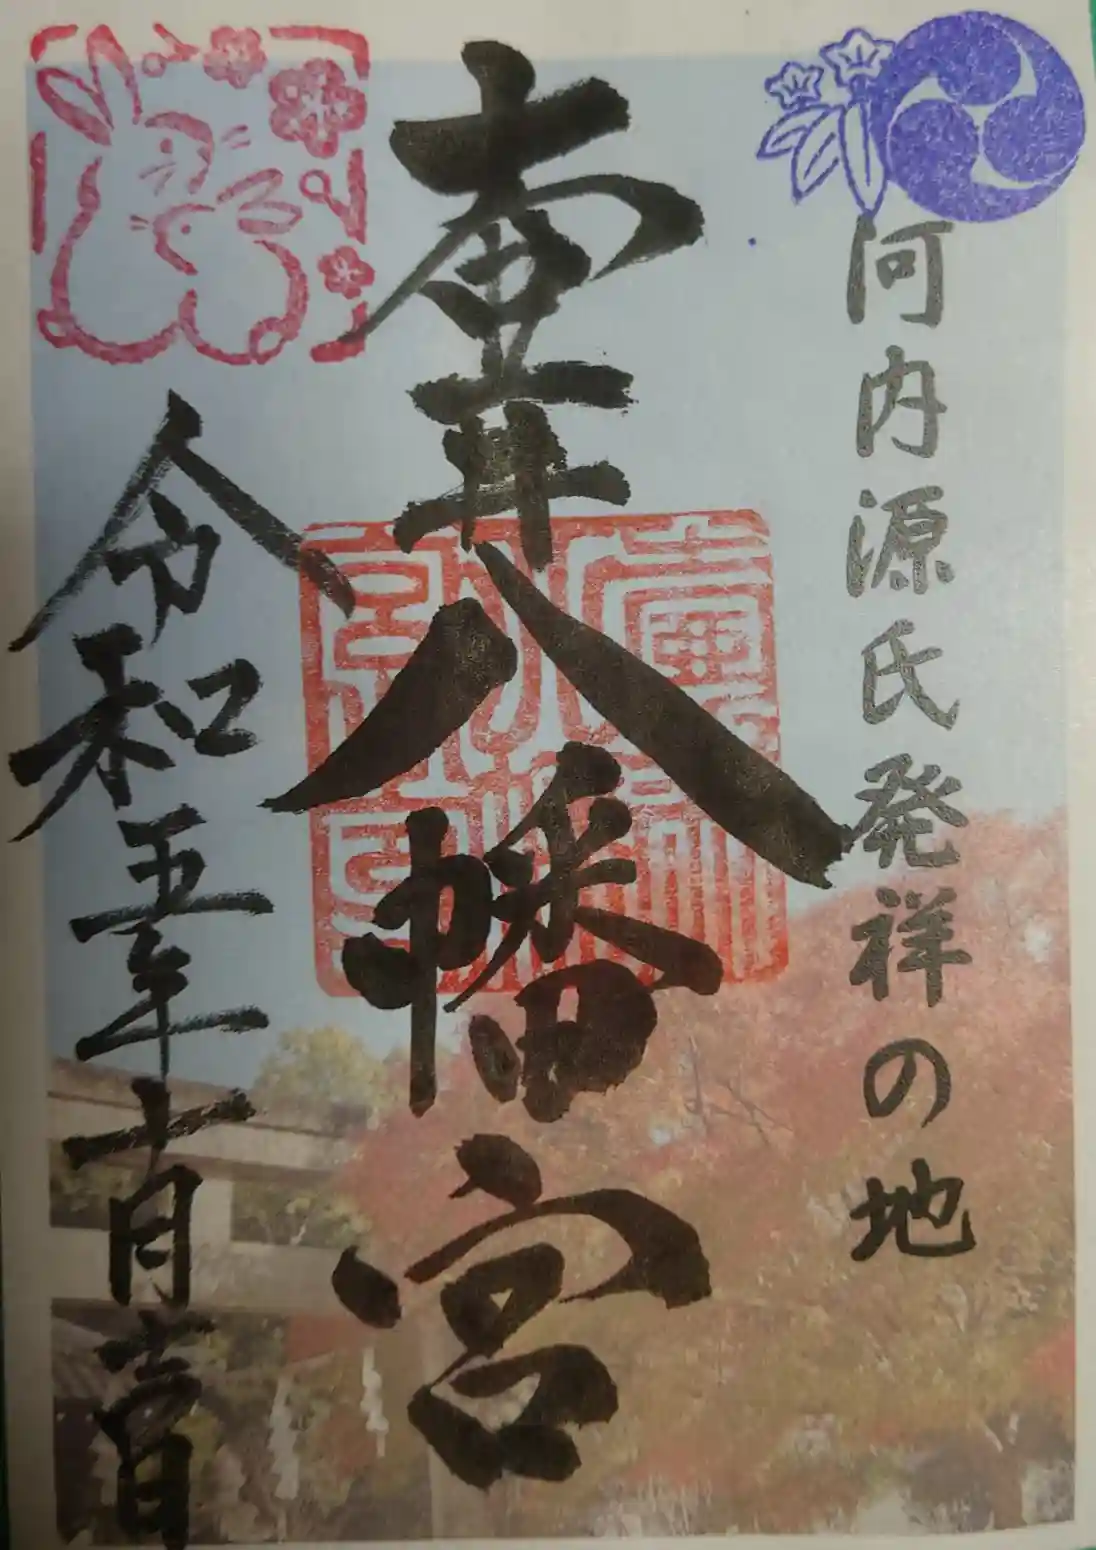 河内源氏発祥の地
壺井八幡宮
令和五年十月壹日